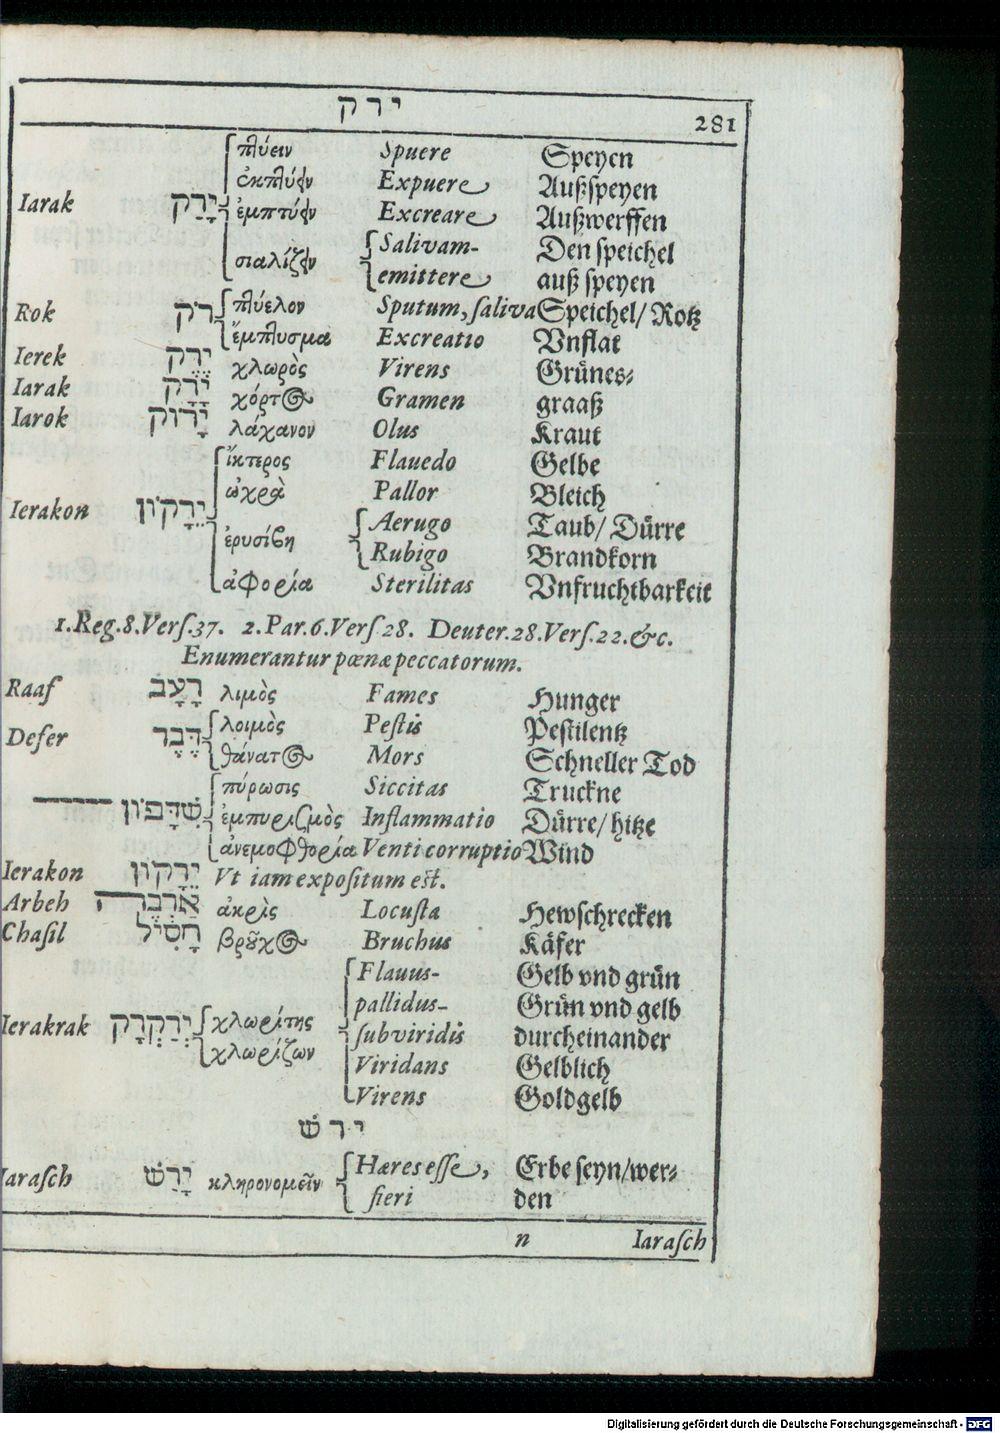 ירק
281
πτύειν Spuere Speyen
ἐκπτύειν Expuere Außspeyen
Iarak יָרַק ἐμπτύειν Excreare Außwerffen
σιαλίζειν Salivam- Den speichel
emittere auß speyen
Rok רֹק πτύελον Sputum, saliva Speichel/ Rotz
ἔμπτυσμα Excreatio Vnflat
Ierek יֶרֶק χλωρὸς Virens Grünes-
Iarak יָרָק χόρτος Gramen graaß
Iarok יָרוֹק λάχανον Olus Kraut
ἴκτερος Flavedo Gelbe
ὠχρὰ Pallor Bleich
Ierakon יֵרָקוֹן ἐρυσίβη Aerugo Taub/ Dürre
Rubigo Brandkorn
ἀφορία Sterilitas Vnfruchtbarkeit
1.Reg.8.Vers.37. 2.Par.6.Vers.28. Deuter.28.Vers.22.&c.
Enumerantur pœnæ peccatorum.
Raaf רָעָב λιμὸς Fames Hunger
Defer דֶּבֶר λοιμὸς Pestis Pestilentz
θάνατος Mors Schneller Tod
πύρωσις Siccitas Truckne
שִׁדָּפוֹן ἐμπυρισμὸς Inflammatio Dürre/ hitze
ἀνεμοφθορία Venti corruptio Wind
Ierakon יֵרָקוֹן Vt iam expositum est.
Arbeh אַרְבֶּה ἀκρὶς Locusta Hewschrecken
Chasil חָסִיל βροῦχος Bruchus Käfer
Flavus- Gelb vnd grün
pallidus- Grün vnd gelb
Ierakrak יְרַקְרָק χλωρίτης subviridis durcheinander
χλωρίζων Viridans Gelblich
Virens Goldgelb
ירשׁ
Iarasch יָרַשׁ κληρονομεῖν Hæres esse, Erbe seyn/wer-
fieri den
n Iarasch
Digitalisierung gefördert durch die Deutsche Forschungsgemeinschaft - DFG